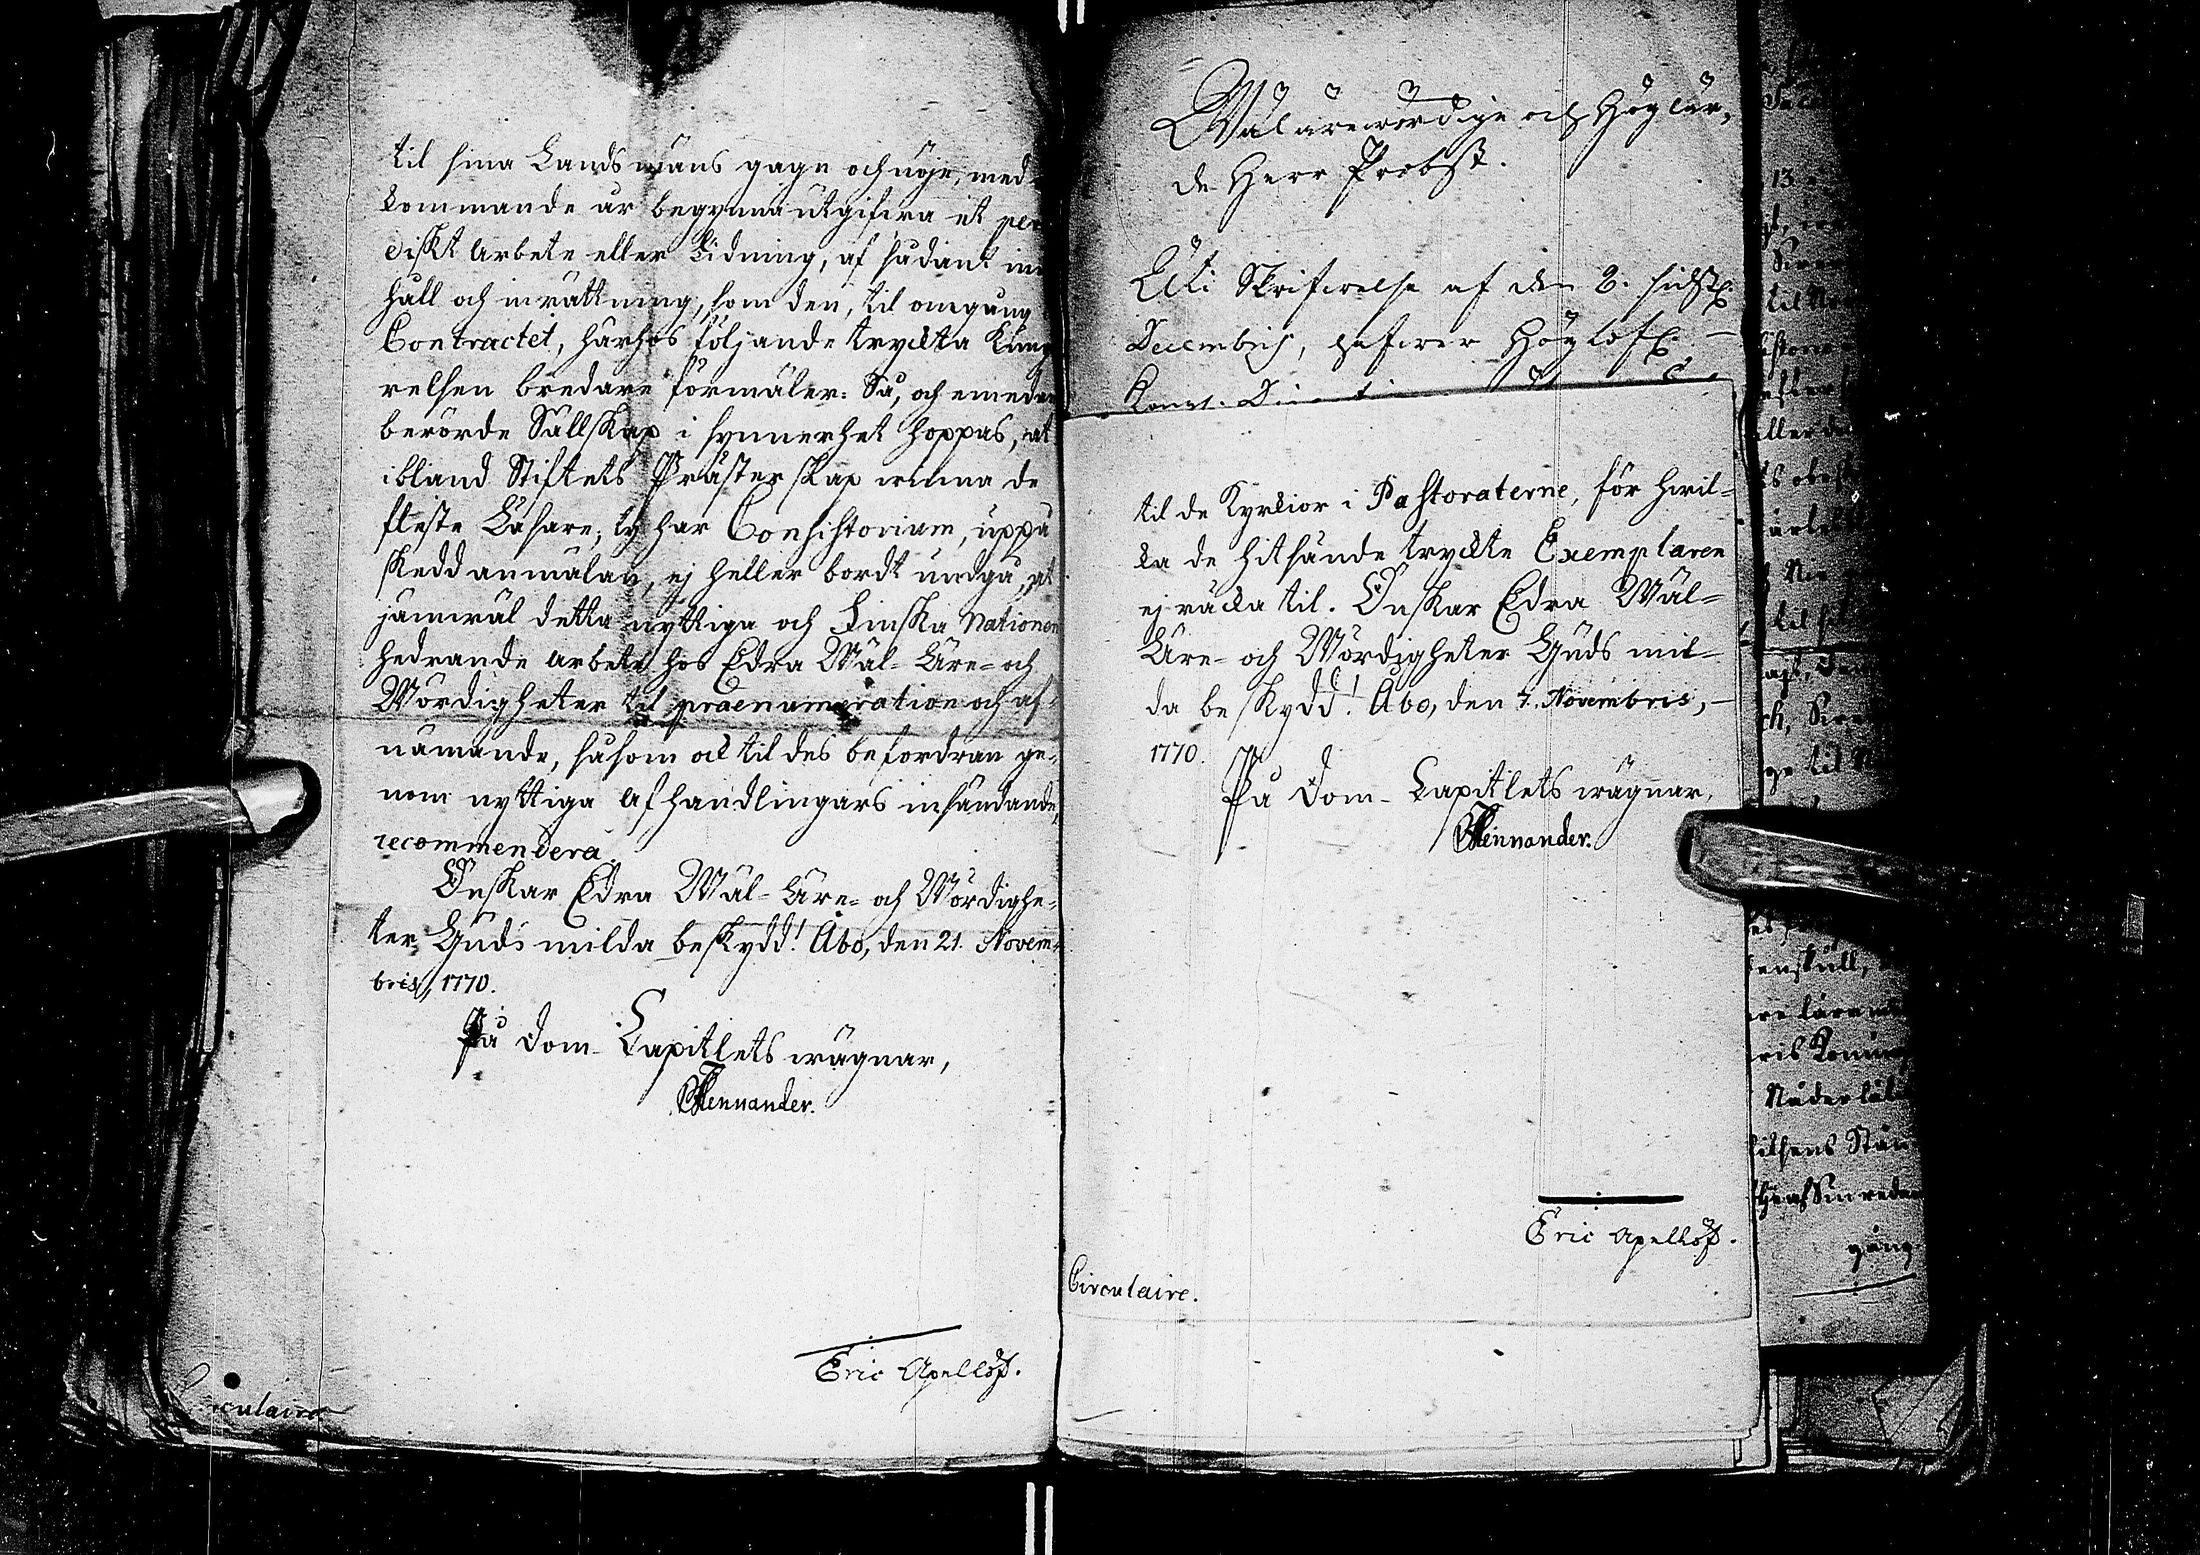 til sina Landsmäns gagn och nöje, med
kommande år begynna utgifwa et per
odiskt arbete eller Tidning, af sådant inne
håll och inrättning, som den, til omgång
Contractet, härhos följande tryckta Kungö
relsen bredare förmäler: Så, och emedan
berörde Sällskap i synnerhet hoppas, at
ibland Stiftets Prästerskap winna de
fleste Läsare; ty har Consistorium, uppå
skedd anmälan, ej heller bordt undgå, at
jämwäl detta nyttiga och Finska Nationen
hedrande arbete hos Edra Wäl- Äre- och
Wördigheter til praenumeration och af-
nämande, såsom ock til des befordran ge-
nom nyttiga afhandlingars insändande,
recommendera.
Önskar Edra Wäl- Äre- och Wördighe-
ter Guds milda beskydd! Åbo, den 21. Novem-
bris, 1770.
På Dom- Capitlets wägnar,
Mennander.
Eric Apellöf.
Circulaire

Wäl ärewördige och Höglär-
de Herr Probst.
Uti Skrifwelse af den 2. sidstl.
Decembris, hafwer Höglofl.
til de Kyrkior i Pastoraterne, för hwil-
ka de hitsände tryckte Exemplaren
ej räcka til. Önskar Edra Wäl-
Äre- och Wördigheter Guds mil-
da beskydd! Åbo, den 7. Novembris,
1770.
På Dom- Capitlets wägnar,
Mennander.
Eric Apellöf.
Circulaire.